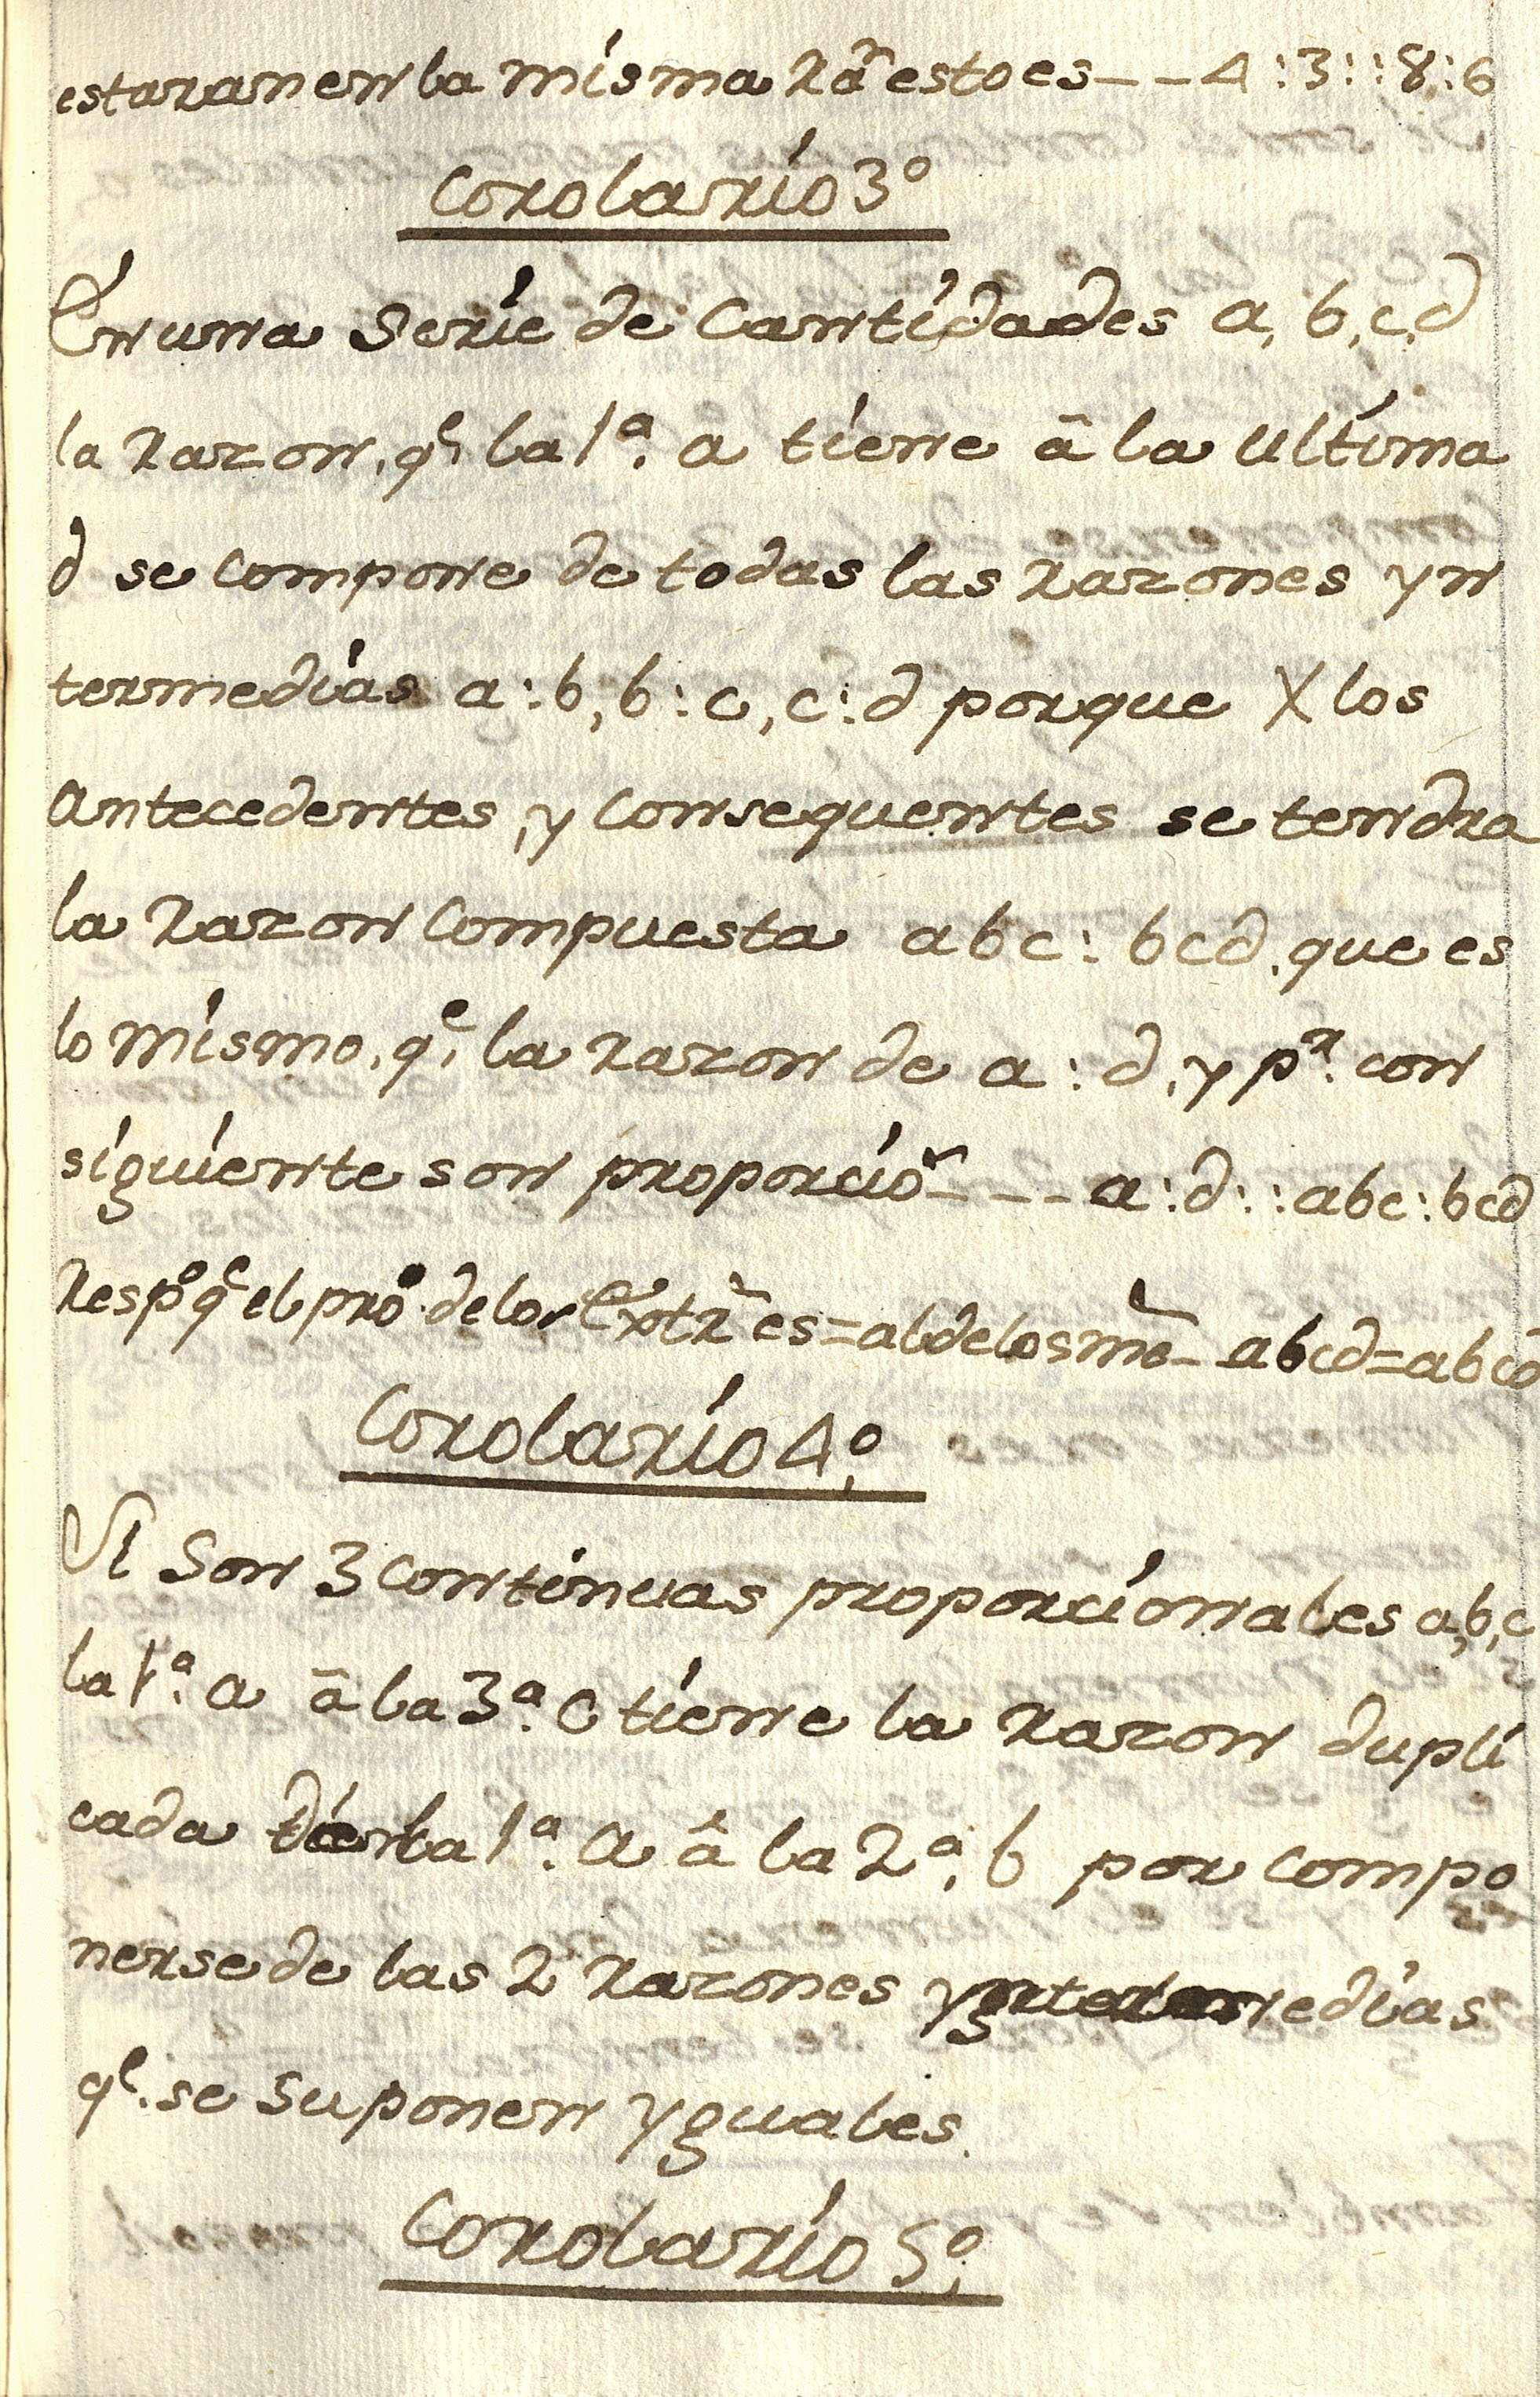 estaran en la misma Raⁿ esto es - - 4 : 3 : : 8 : 6
Corolario 3º
En una Serie de Cantidades a, b, c, d
la Razon, qᵉ la 1ª. a tiene â la Ultima
d se compone de todas las Razones yn
termedias a : b, b : c, c : d porque X los
Antecedentes, y Consequentes se tendra
la Razon Compuesta abc : bcd, que es
lo mismo, qᵉ la razon de a : d, y pʳ. con
siguiente son proporcioⁿ - - - a : d : : abc : bcd
Respº qᵉ el proº de los Extrˢ es = al de los mº - abcd = abcd
Corolario 4º.
Si Son 3 continuas proporcionales a, b, c
la 1ª. a â la 3ª. c tiene la razon dupli
cada de la 1ª. a â la 2ª, b por compo
nerse de las 2 razones yntermedias
qᵉ. se Suponen yguales.
Corolario 5º.